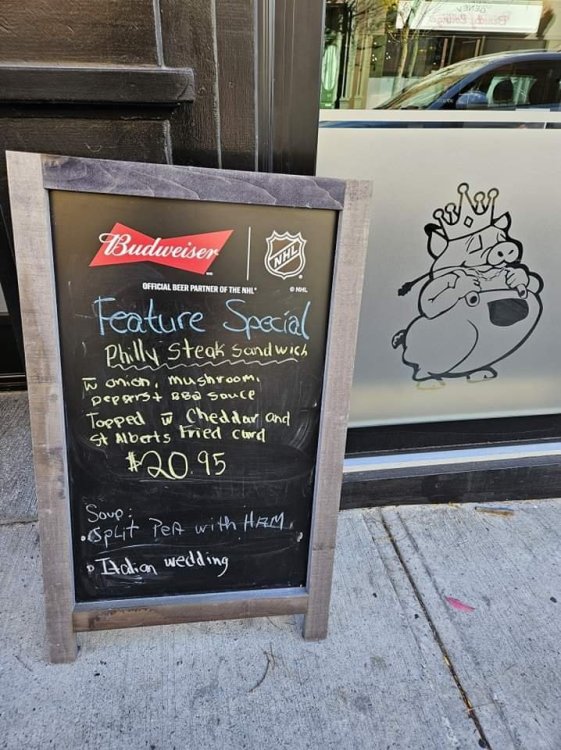 Budweiser
NHL
OFFICIAL BEER PARTNER OF THE NHL*
© NHL
Feature Special
Philly Steak Sandwich
w̄ onion, mushroom,
pepers + BBQ sauce
Topped w̄ Cheddar and
St Alberts Fried curd
$20.95
Soup:
• Split Pea with HAM.
• Italian wedding